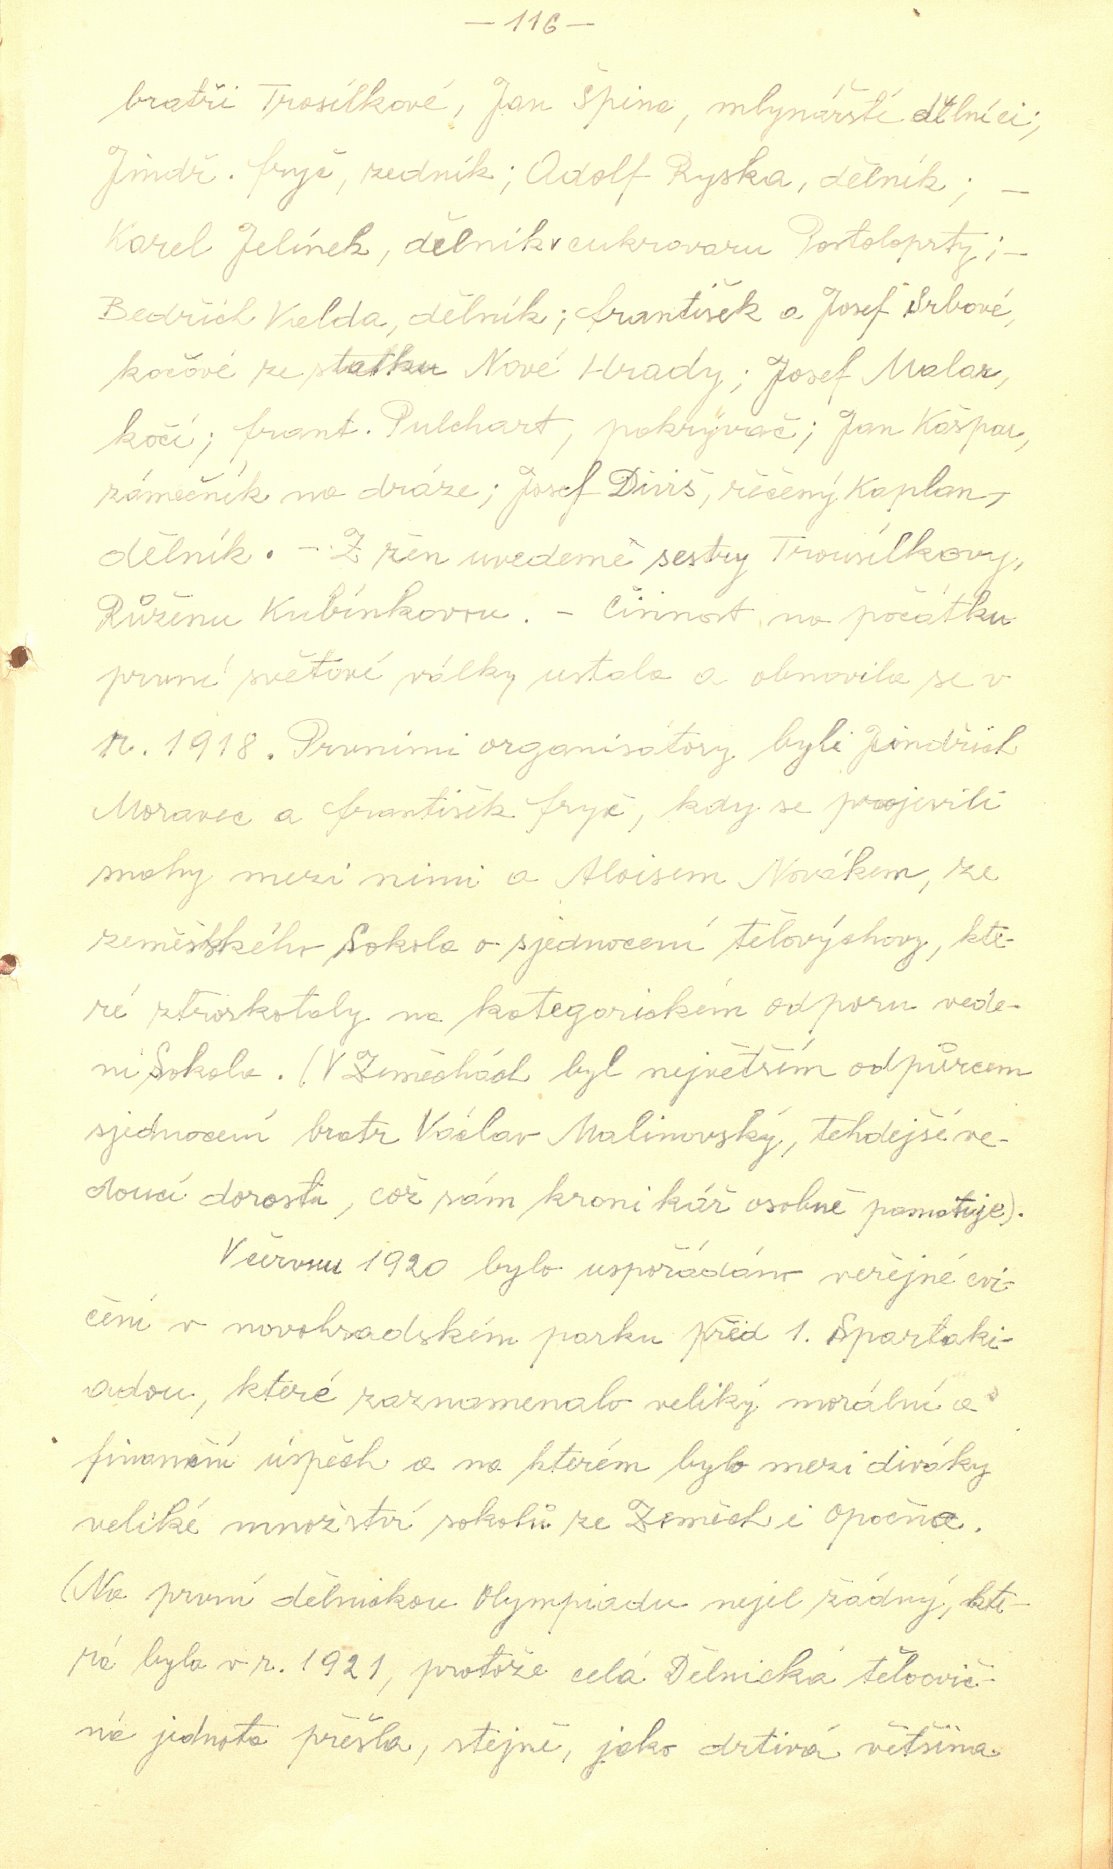 — 116 —
bratři Trosílkové, Jan Špina, mlynářští dělníci;
Jindř. Fryč, zedník; Adolf Ryska, dělník; —
Karel Jelínek, dělník v cukrovaru Postoloprty; —
Bedřich Kvelda, dělník; František a Josef Srbové,
kočové ze statku Nové Hrady; Josef Malar,
kočí; Frant. Pulchart, pokrývač; Jan Kašpar,
zámečník na dráze; Josef Diviš, řečený Kaplan,
dělník. — Z žen uvedeme sestry Trousílkovy,
Růženu Kubínkovou. — Činnost na počátku
první světové války ustala a obnovila se v
r. 1918. Prvními organisátory byli Jindřich
Moravec a František Fryč, kdy se projevili
snahy mezi nimi a Aloisem Novákem, ze
zeměšského Sokola o sjednocení tělovýchovy, kte-
ré ztroskotaly na kategorickém odporu vede-
ni Sokola. (V Zeměchách byl největším odpůrcem
sjednocení bratr Václav Malinovský, tehdejší ve-
doucí dorostu, což sám kronikář osobně pamatuje).
V červnu 1920 bylo uspořádáno veřejné cvi-
čení v novohradském parku před 1. Spartaki-
adou, které zaznamenalo veliký morální a
finanční úspěch a na kterém bylo mezi diváky
veliké množství sokolů ze Zeměch i Opočna.
(Na první dělnickou Olympiadu nejel žádný, kte-
rá byla v r. 1921, protože celá Dělnická tělocvič-
ná jednota přešla, stejně, jako drtivá většina